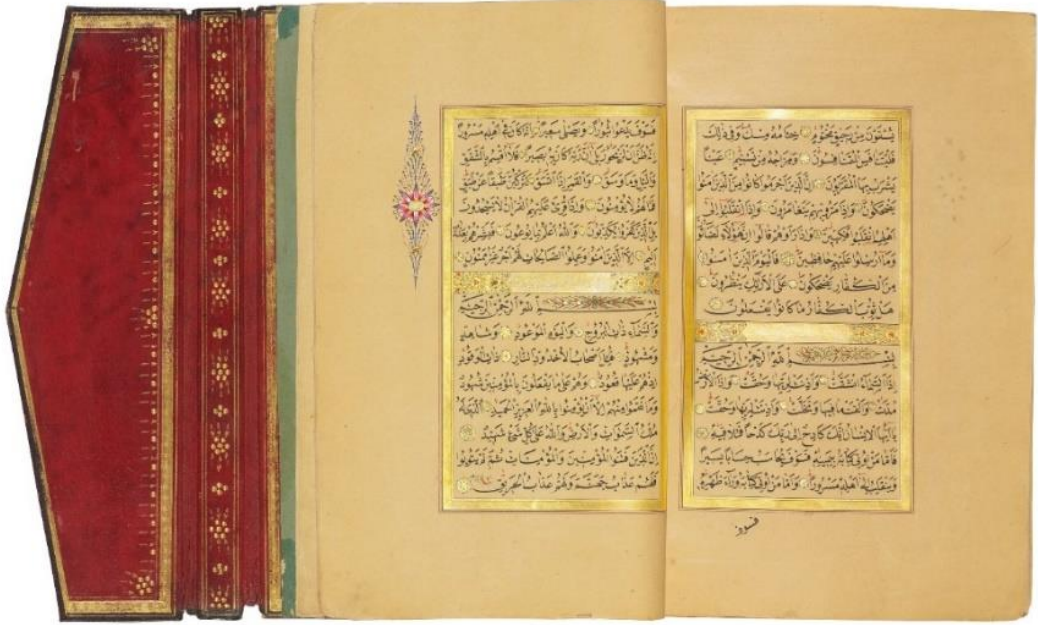 يُسْقَوْنَ مِنْ رَحِيقٍ مَخْتُومٍ خِتَامُهُ مِسْكٌ وَفِي ذٰلِكَ
فَلْيَتَنَافَسِ الْمُتَنَافِسُونَ وَمِزَاجُهُ مِنْ تَسْنِيمٍ عَيْنًا
يَشْرَبُ بِهَا الْمُقَرَّبُونَ اِنَّ الَّذِينَ اَجْرَمُوا كَانُوا مِنَ الَّذِينَ اٰمَنُوا
يَضْحَكُونَ وَاِذَا مَرُّوا بِهِمْ يَتَغَامَزُونَ وَاِذَا انْقَلَبُوا اِلٰى
اَهْلِهِمُ انْقَلَبُوا فَكِهِينَ وَاِذَا رَاَوْهُمْ قَالُوا اِنَّ هٰؤُلَاءِ لَضَالُّونَ
وَمَا اُرْسِلُوا عَلَيْهِمْ حَافِظِينَ فَالْيَوْمَ الَّذِينَ اٰمَنُوا
مِنَ الْكُفَّارِ يَضْحَكُونَ عَلَى الْاَرَائِكِ يَنْظُرُونَ
هَلْ ثُوِّبَ الْكُفَّارُ مَا كَانُوا يَفْعَلُونَ
بِسْمِ اللّٰهِ الرَّحْمٰنِ الرَّحِيمِ
اِذَا السَّمَاءُ انْشَقَّتْ وَاَذِنَتْ لِرَبِّهَا وَحُقَّتْ وَاِذَا الْاَرْضُ
مُدَّتْ وَاَلْقَتْ مَا فِيهَا وَتَخَلَّتْ وَاَذِنَتْ لِرَبِّهَا وَحُقَّتْ
يَا اَيُّهَا الْاِنْسَانُ اِنَّكَ كَادِحٌ اِلٰى رَبِّكَ كَدْحًا فَمُلَاقِيهِ
فَاَمَّا مَنْ اُوتِيَ كِتَابَهُ بِيَمِينِهِ فَسَوْفَ يُحَاسَبُ حِسَابًا يَسِيرًا
وَيَنْقَلِبُ اِلٰى اَهْلِهِ مَسْرُورًا وَاَمَّا مَنْ اُوتِيَ كِتَابَهُ وَرَاءَ ظَهْرِهِ
فسوف
فَسَوْفَ يَدْعُوا ثُبُورًا وَيَصْلٰى سَعِيرًا اِنَّهُ كَانَ فِي اَهْلِهِ مَسْرُورًا
اِنَّهُ ظَنَّ اَنْ لَنْ يَحُورَ بَلٰى اِنَّ رَبَّهُ كَانَ بِهِ بَصِيرًا فَلَا اُقْسِمُ بِالشَّفَقِ
وَالَّيْلِ وَمَا وَسَقَ وَالْقَمَرِ اِذَا اتَّسَقَ لَتَرْكَبُنَّ طَبَقًا عَنْ طَبَقٍ
فَمَا لَهُمْ لَا يُؤْمِنُونَ وَاِذَا قُرِئَ عَلَيْهِمُ الْقُرْاٰنُ لَا يَسْجُدُونَ
بَلِ الَّذِينَ كَفَرُوا يُكَذِّبُونَ وَاللّٰهُ اَعْلَمُ بِمَا يُوعُونَ فَبَشِّرْهُمْ بِعَذَابٍ
اَلِيمٍ اِلَّا الَّذِينَ اٰمَنُوا وَعَمِلُوا الصَّالِحَاتِ لَهُمْ اَجْرٌ غَيْرُ مَمْنُونٍ
بِسْمِ اللّٰهِ الرَّحْمٰنِ الرَّحِيمِ
وَالسَّمَاءِ ذَاتِ الْبُرُوجِ وَالْيَوْمِ الْمَوْعُودِ وَشَاهِدٍ
وَمَشْهُودٍ قُتِلَ اَصْحَابُ الْاُخْدُودِ النَّارِ ذَاتِ الْوَقُودِ
اِذْ هُمْ عَلَيْهَا قُعُودٌ وَهُمْ عَلٰى مَا يَفْعَلُونَ بِالْمُؤْمِنِينَ شُهُودٌ
وَمَا نَقَمُوا مِنْهُمْ اِلَّا اَنْ يُؤْمِنُوا بِاللّٰهِ الْعَزِيزِ الْحَمِيدِ الَّذِي لَهُ
مُلْكُ السَّمٰوَاتِ وَالْاَرْضِ وَاللّٰهُ عَلٰى كُلِّ شَيْءٍ شَهِيدٌ
اِنَّ الَّذِينَ فَتَنُوا الْمُؤْمِنِينَ وَالْمُؤْمِنَاتِ ثُمَّ لَمْ يَتُوبُوا
فَلَهُمْ عَذَابُ جَهَنَّمَ وَلَهُمْ عَذَابُ الْحَرِيقِ